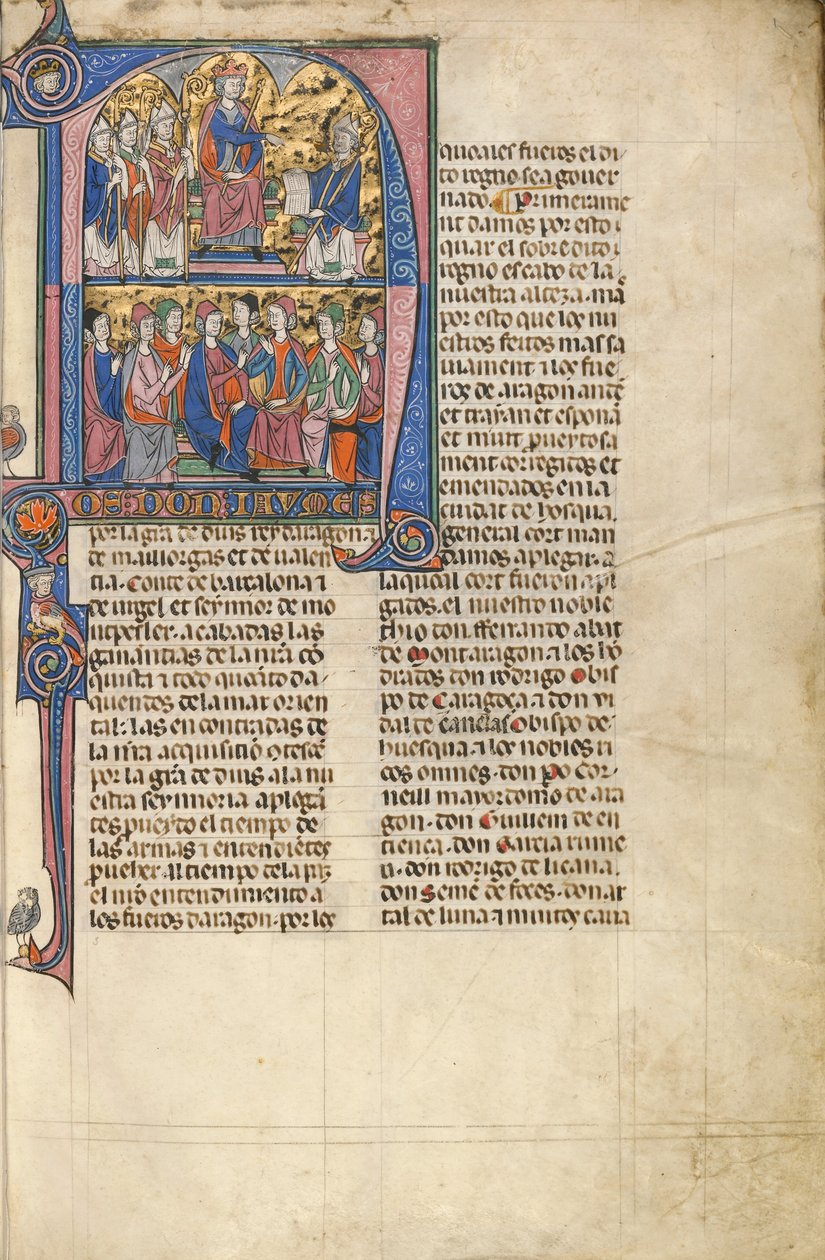 NOS DON IAVMES
por la gr̃a de dius rey daragon ⁊
de maillorgas et de ualen
tia. Conte de barcalona ⁊
de urgel et seynnor de mo
ntpesler. acabadas las
ganãntias de la nr̃a cõ
quista et todo quãnto da
quendes de la mar orien
tal. las encontradas de
la nr̃a acquisitiõ
por la gr̃a de dius a la nu
estra seynnoria aplegã
tes pueyto el tiempo de
las armas ⁊ entendiẽtes
prueber al tiempo de la paz
el nr̃o entendimiento a
los fueros daragon. por los
quoales fueros el di
to regno sea gouer
nado. ¶ Primerame
nt damos por esto ⁊
quar el sobredito
regno es cabo de la
nuestra alteza. mas
por esto que los nu
estros feitos massa
uiament ⁊ los fue
ros de aragon ante
et trayan et esponã
et muit prueytosa
ment corregitos et
emendados en la
ciudat de hosqua.
general cort man
damos aplegar. a
la quoal cort fueron apl
gados. el nuestro noble
thio don fferrando abat
de Montaragon ⁊ los hõ
drados don rodrigo Obis
po de Caragoça ⁊ don ui
dal de Canelas Obispo de
huesqua ⁊ los nobles ri
cos omnes. don Po Cor
neill mayordomo de ara
gon. don Guillem de en
tienca. don Garcia rume
u. don rodrigo de licana.
don Semẽ de foces. don ar
tal de luna ⁊ muitos caua